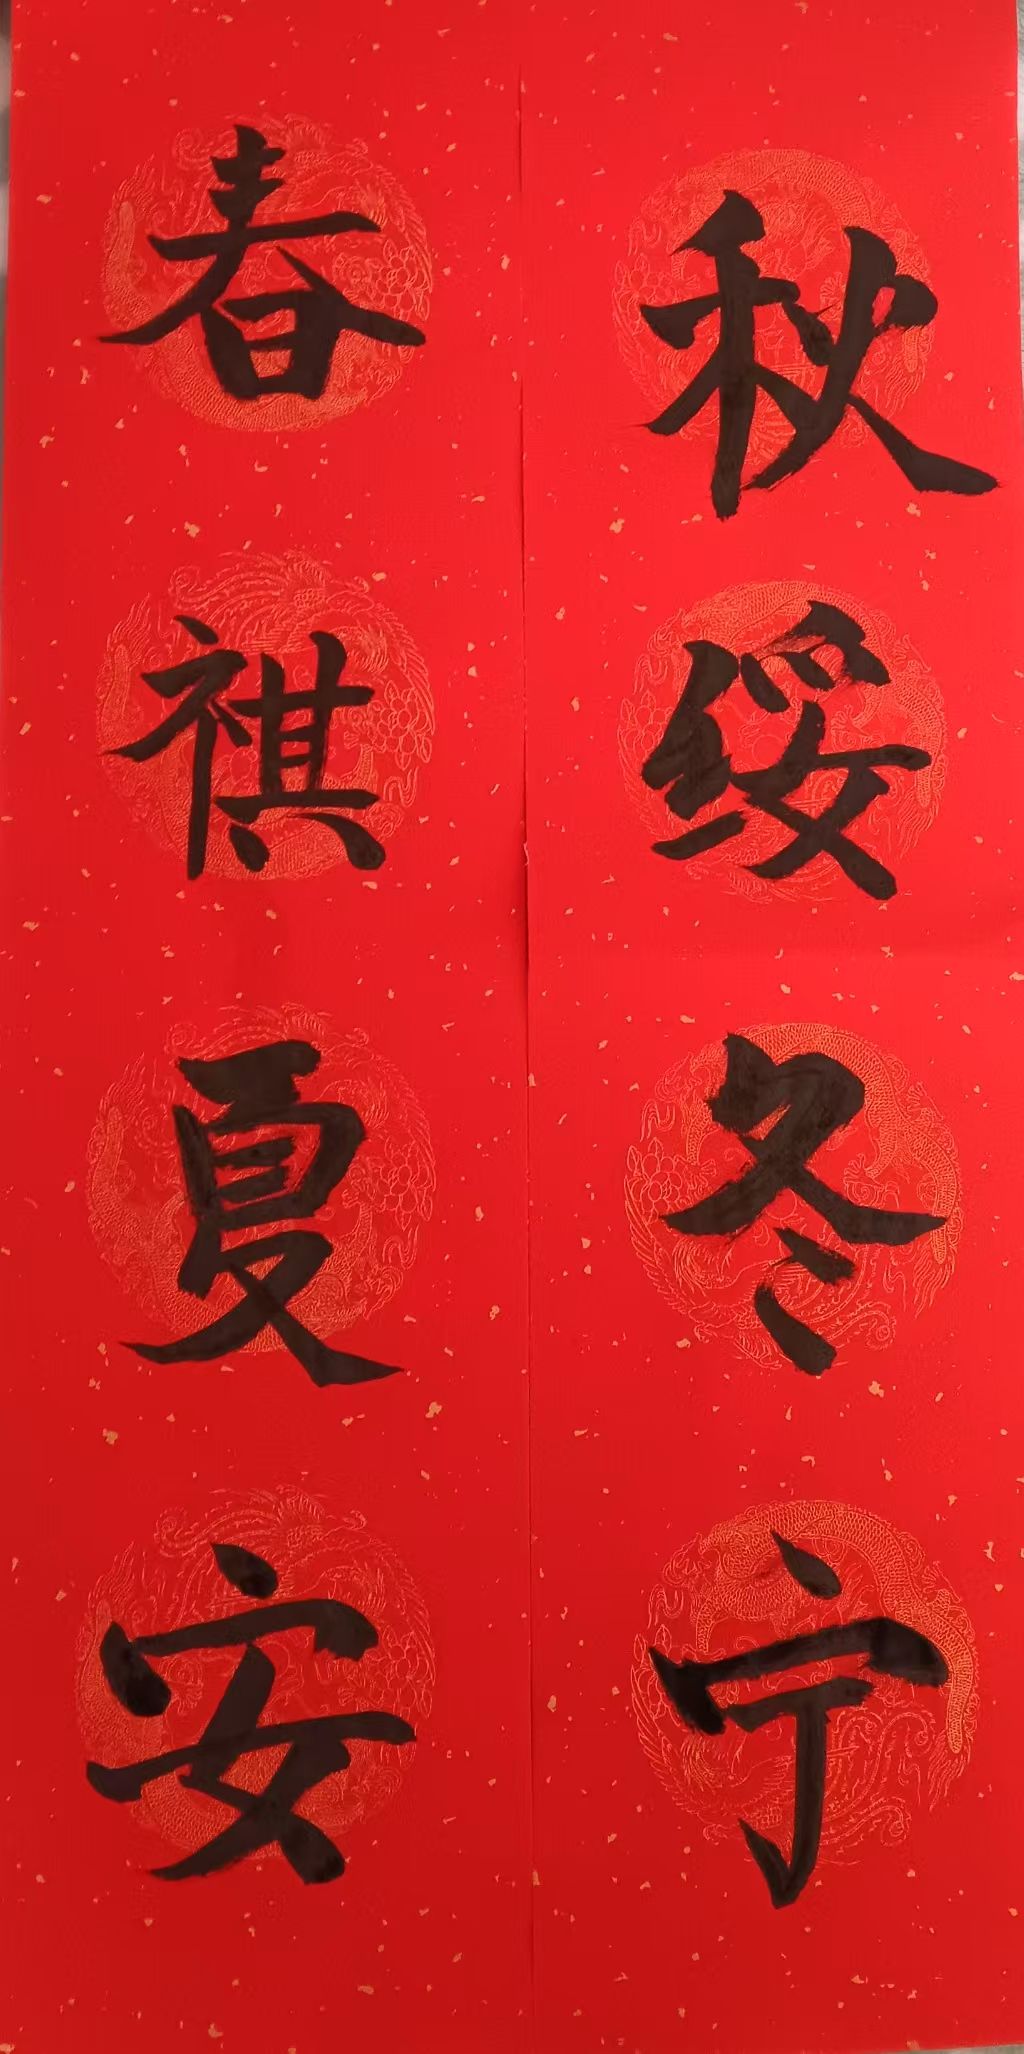 春祺夏安
秋绥冬宁